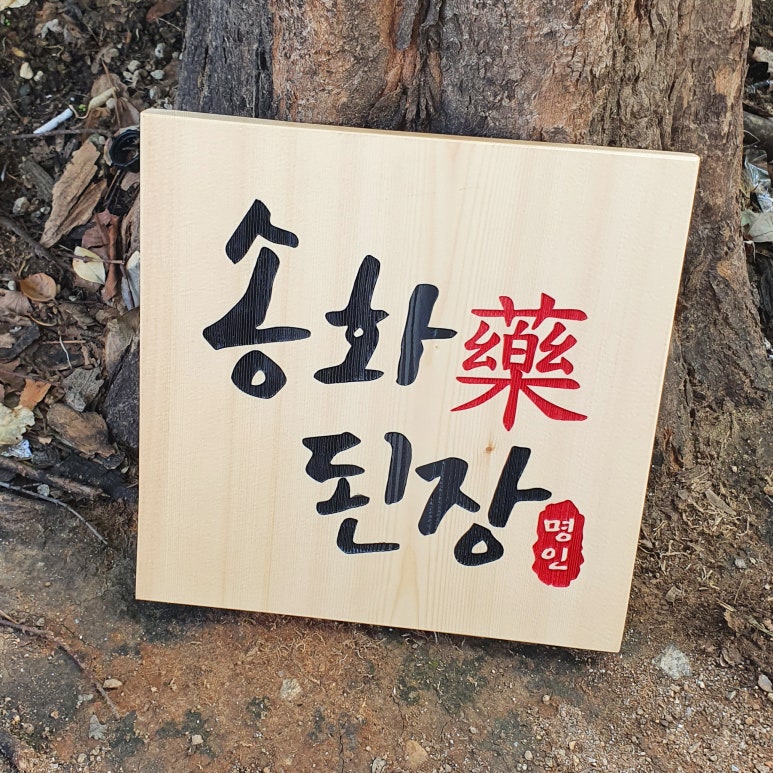 송화藥
된장
명인